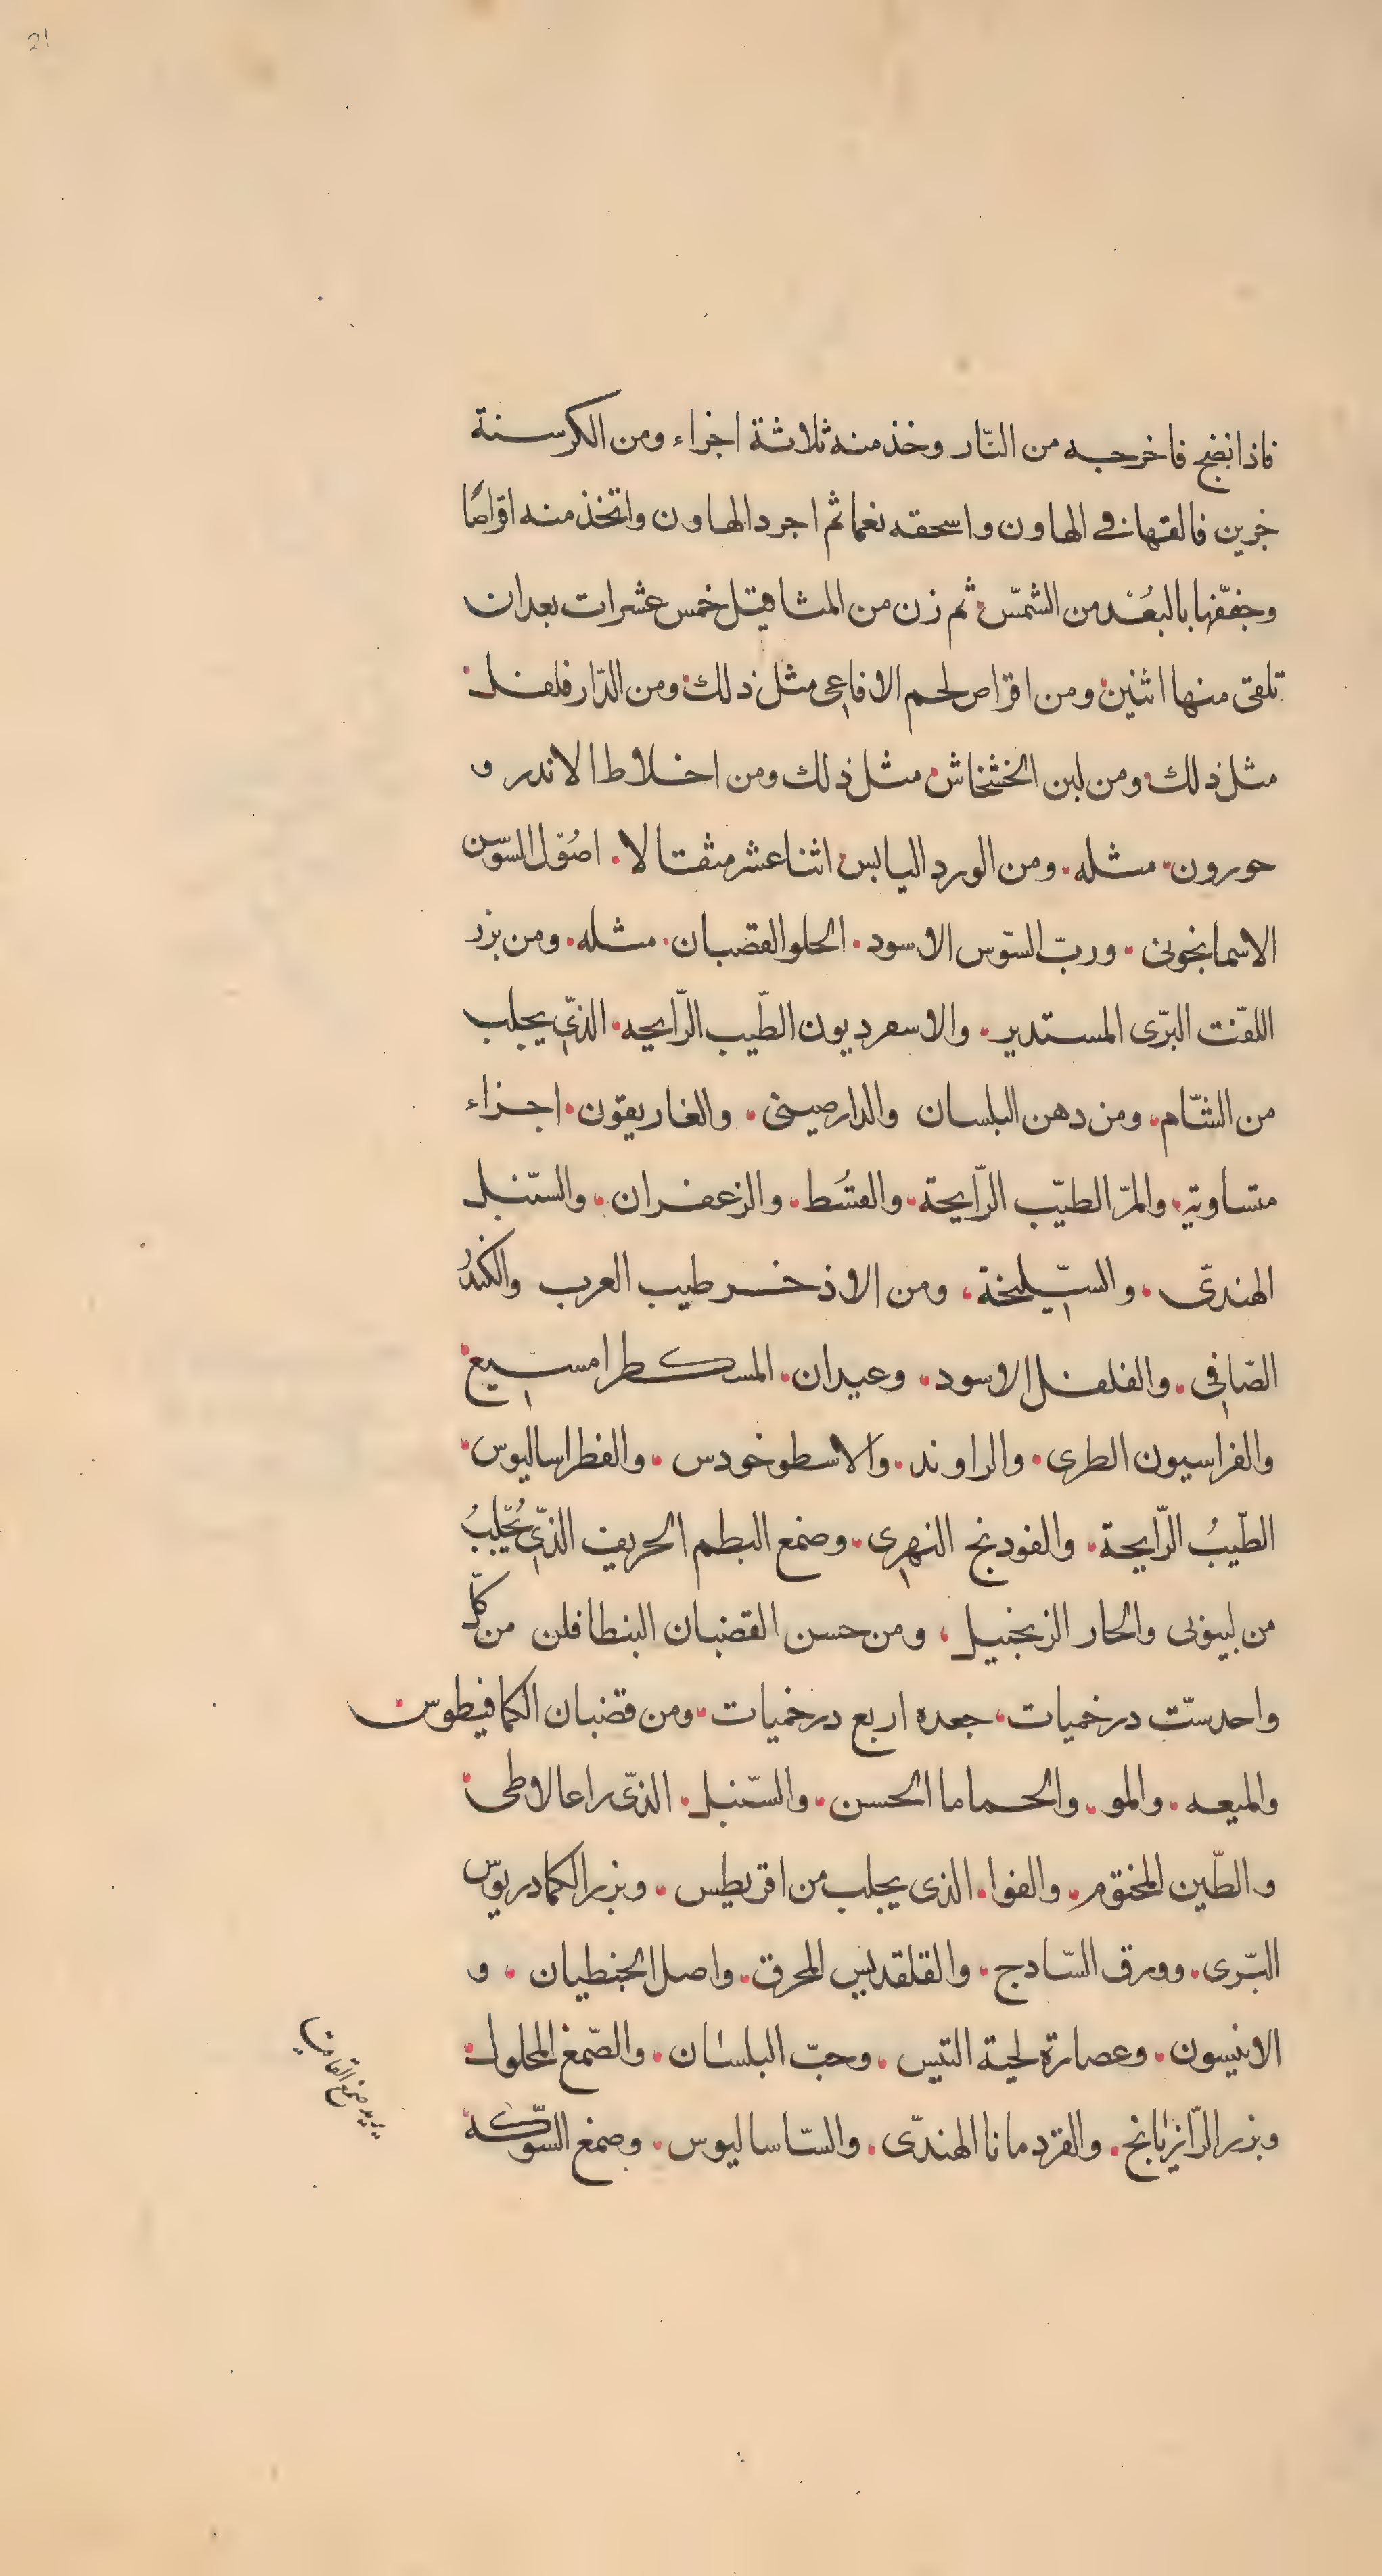 21
فاذا نضج فاخرجه من النّار وخذ منه ثلاثة اجزاء ومن الكرسنة
جزين فالقها في الهاون واسحقه نعما ثم اجرد الهاون واتخذ منه اقراصًا
وجفّفها بالبعُد من الشمّس ثم زن من المثاقيل خمس عشرات بعد ان
تلقى منها اثنين ومن اقراص لحم الافاعى مثل ذلك ومن الدّار فلفل
مثل ذلك ومن لبن الخشخاش مثل ذلك ومن اخلاط الاندر و
حورون مثله ومن الورد اليابس اثنا عشر مثقالا اصُول السّوسن
الاسمانجونى وربّ السّوس الاسود الحلو القضبان مثله ومن بزر
اللفّت البرّى المستدير والاسعرديون الطّيب الرّايحه الذّي يجلب
من الشّام ومن دهن البلسان والدارصينى والغاريقون اجزاء
متساوية والمرّ الطيّب الرّايحة والقسُط والزعفران والسّنبل
الهندىّ والسّليخة ومن الاذخر طيب العرب والكندُر
الصّافي والفلفل الاسود وعيدان المسكطرامسيع
والفراسيون الطرى والراوند والاسطوخودس والفطراساليوس
الطّيبُ الرّايحة والفودنج النهري وصمغ البطم الحريف الذّي يُجلبُ
من ليبونى والحار الزنجبيل ومن حسن القضبان البنطافلن من كلّ
واحد ستّ درخميات جعده اربع درخميات ومن قضبان الكمافيطوس
والميعه والمو والحماما الحسن والسّنبل الذّى راعالاوطى
والطّين المختوم والفوا الذى يجلب من اقريطس وبزر الكمادريوس
البّرى وورق السّادج والقلقديس المحرق واصل الجنطيان و
الانيسون وعصارة لحية التيس وحبّ البلسان والصّمغ المحلول
وبزر الرّازيانج والقردمانا الهندّى والسّاساليوس وصمغ السّوكه
يريد صمغ القاقيا